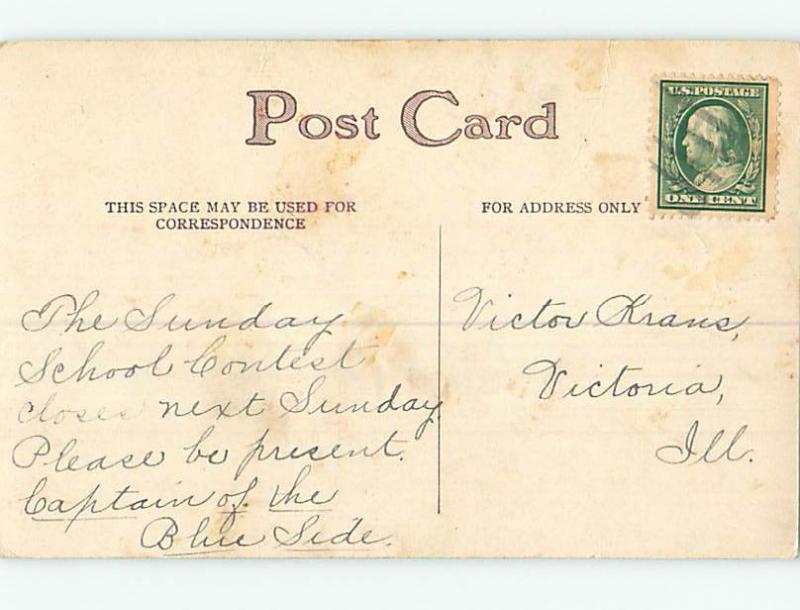 Post Card
U.S. POSTAGE
ONE CENT
THIS SPACE MAY BE USED FOR
CORRESPONDENCE
FOR ADDRESS ONLY
The Sunday
School Contest
closes next Sunday
Please be present.
Captain of the
Blue Side.
Victor Krans,
Victoria,
Ill.